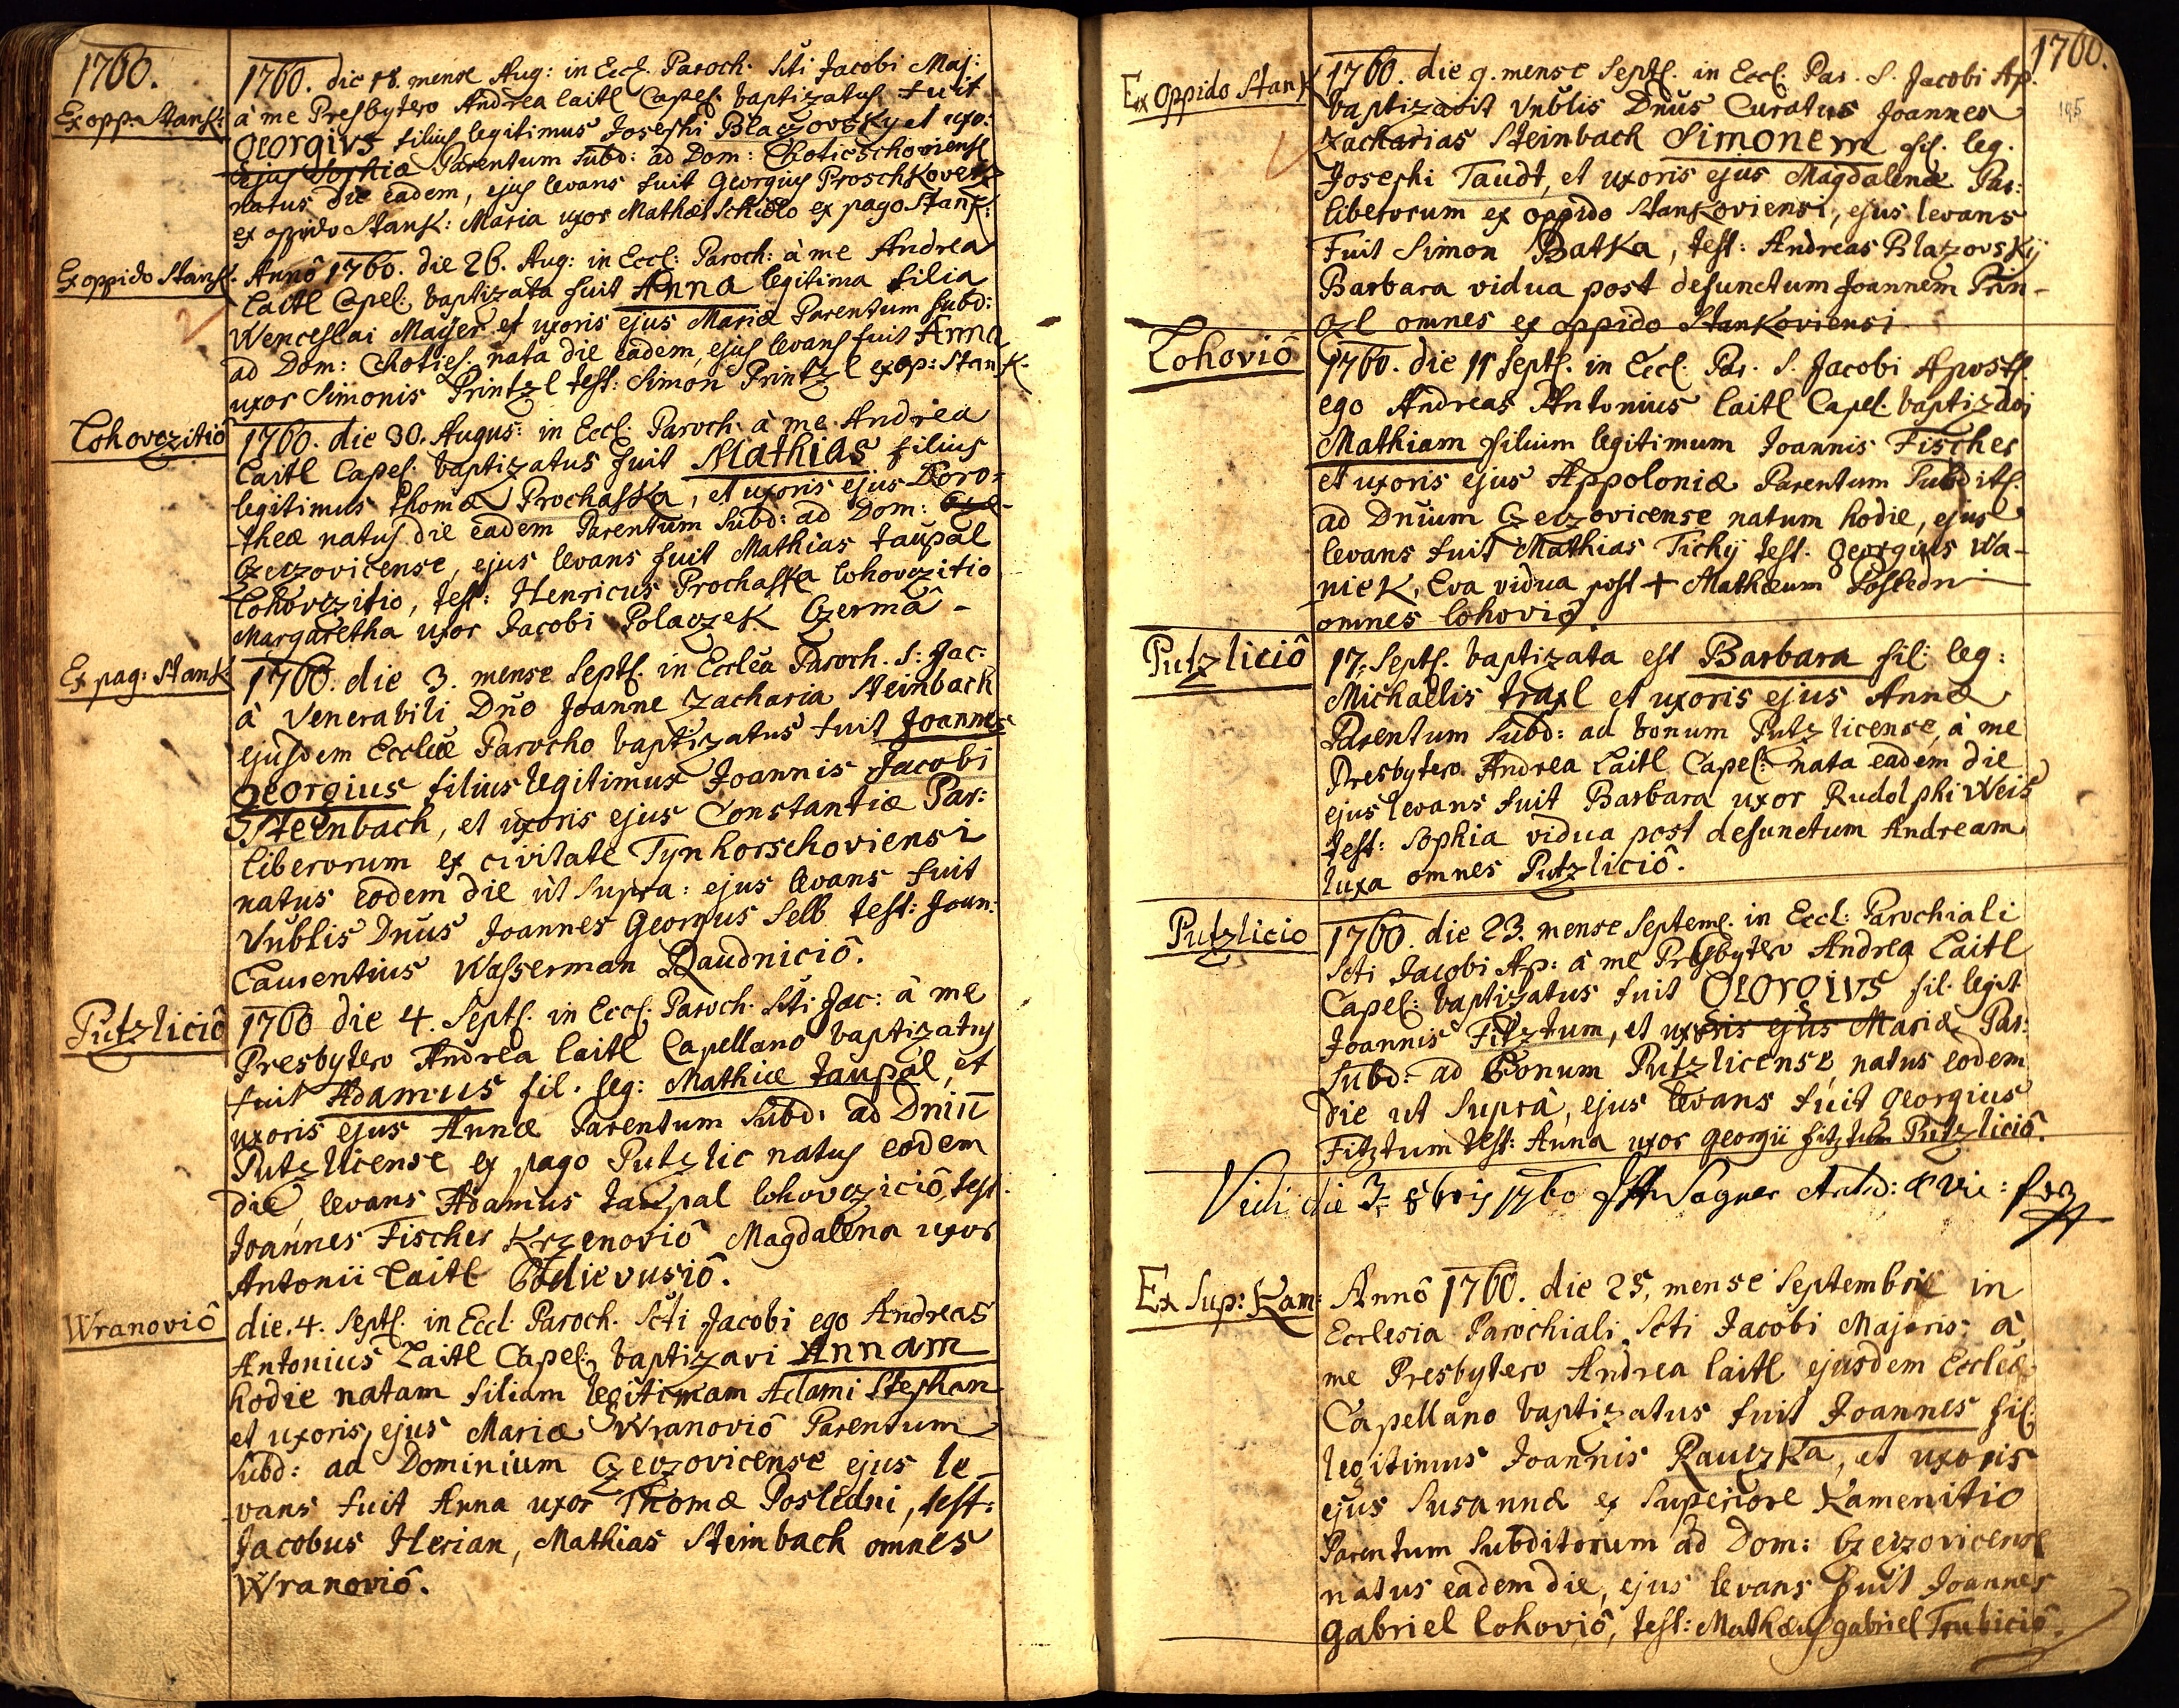 1760.
Ex opp: Stank:
1760. die 18. mense Aug: in Eccl. Paroch. Sti Jacobi Maj:
à me Presbytero Andrea Laitl Capel. baptizatus fuit
Georgius filius legitimus Josephi Blazovsky et uxo:
ejus Sophia Parentum Subd: ad Dom: Chotieschoviense
natus die eadem, ejus levans fuit Georgius Proschkovetz
ex oppido Stank: Maria uxor Mathæi Schidlo ex pago Stank:
Ex oppido Stank.
Annô 1760. die 26. Aug: in Eccl: Paroch: à me Andrea
Laitl Capel: baptizata fuit Anna legitima filia
Wenceslai Mayer et uxoris ejus Mariæ Parentum Subd:
ad Dom: Choties. nata die eadem, ejus levans fuit Anna
uxor Simonis Printzl test: Simon Printzl ex op: Stank.
Lohovczitio
1760. die 30. Augus: in Eccl. Paroch. à me Andrea
Laitl Capel. baptizatus fuit Mathias filius
legitimus Thomæ Prochaska, et uxoris ejus Doro=
theæ natus die eadem Parentum Subd: ad Dom:
Czeczovicense, ejus levans fuit Mathias Taupal
Lohovczitio, test: Henricus Prochaska Lohovczitio
Margaretha uxor Jacobi Polaczek Czermâ -
Ex pag: Stank
1760. die 3. mense Septl. in Ecclêa Paroch. S: Jac:
à Venerabili Dno Joanne Zacharia Steinbach
ejusdem Eccleæ Parocho baptizatus fuit Joannes
Georgius filius legitimus Joannis Jacobi
Steinbach, et uxoris ejus Constantiæ Par:
liberorum ex civitate Tynhorschoviensi
natus eodem die ùt Supra: ejus levans fuit
Vnblis Dnus Joannes Georgius Selb test: Joan:
Laurentius Wasserman Raudniciô.
Putzliciô
1760 die 4. Septl. in Eccl. Paroch. Sti Jac: à me
Presbytero Andrea Laitl Capellano baptizatus
fuit Adamus fil. leg: Mathiæ Taupal, et
uxoris ejus Annæ Parentum Subd: ad Dniu
Putzlicense ex pago Putzlic natus eodem
die, levans Adamus Taupal Lohovcziciô, test.
Joannes Fischer Krzenoviô Magdalena uxor
Antonii Laitl Hodievusiô.
Wranoviô
die 4. Septl. in Eccl. Paroch. Scti Jacobi ego Andreas
Antonius Laitl Capel: baptizavi Annam
hodie natam filiam legitimam Adami Stephan
et uxoris ejus Mariæ Wranoviô Parentum
Subd: ad Dominium Czeczovicense ejus le-
vans fuit Anna uxor Thomæ Posledni, test:
Jacobus Herian, Mathias Steinbach omnes
Wranoviô.
1760.
195
Ex Oppido Stank
1760. die 9. mense Septl. in Eccl. Par. S. Jacobi Ap.
baptizavit Vnblis Dnus Curatus Joannes
Zacharias Steinbach Simonem fil. leg.
Josephi Taudt, et uxoris ejus Magdalenæ Par:
liberorum ex oppido Stankoviensi, ejus levans
fuit Simon Batka, test: Andreas Blazovskÿ
Barbara vidua post defunctum Joannem Prin-
czl omnes ex oppido Stankoviensi
Lohoviô
1760. die 11 Septl. in Eccl. Par. S. Jacobi Apostl.
ego Andreas Antonius Laitl Capel. baptizavi
Mathiam filium legitimum Joannis Fischer
et uxoris ejus Appoloniæ Parentum Subditl.
ad Dnium Czeczovicense natum hodie, ejus
levans fuit Mathias Tichÿ test. Georgius Wa-
niek, Eva vidua post + Mathæum Posledni
omnes Lohoviô.
Putzliciô
17. Septl. baptizata est Barbara fil: leg:
Michaelis Traxl et uxoris ejus Annæ
Parentum Subd: ad bonum Putzlicense, à me
Presbytero Andrea Laitl Capel: nata eadem die
ejus levans fuit Barbara uxor Rudolphi Weis
test: Sophia vidua post defunctum Andream
Luxa omnes Putzliciô.
Putzlicio
1760. die 23. mense Septeml. in Eccl: Parochiali
Scti Jacobi Ap: à me Presbytero Andrea Laitl
Capel: baptizatus fuit Georgius fil. legit
Joannis Fitztum, et uxoris ejus Mariæ Par:
Subd: ad Bonum Putzlicense, natus eodem
die ut Suprà, ejus levans fuit Georgius
Fitztum test: Anna uxor Georgii Fitztum Putzliciô.
Vidi die 3. 8bris 1760 Wagner
Ex Sup: Kam:
Annô 1760. die 25. mense Septembris in
Ecclesia Parochiali Scti Jacobi Majoris à
me Presbytero Andrea Laitl ejusdem Eccleæ
Capellano baptizatus fuit Joannes fil:
legitimus Joannis Rauczka, et uxoris
ejus Susannæ ex Superiore Kamenitio
Parentum Subditorum ad Dom: Czeczovicense
natus eadem die, ejus levans fuit Joannes
Gabriel Lohoviô, test: Mathæus Gabriel Trubiciô.